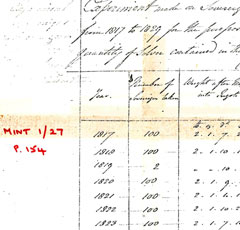 Experiment made on Sovereig
from 1817 to 1829 for the purpose
quantity of Silver contained in th
Year. Number of Sovereigns taken Weight after
into Ingots
MINT 1/27
P. 154
1817 100 2. 1. 7.
1818 100 2. 1. 10.
1819 2
1820 100 2. 1. 9.
1821 100 2. 1.
1822 100 2. 1. 10.
1823 100 2. 1. 7.